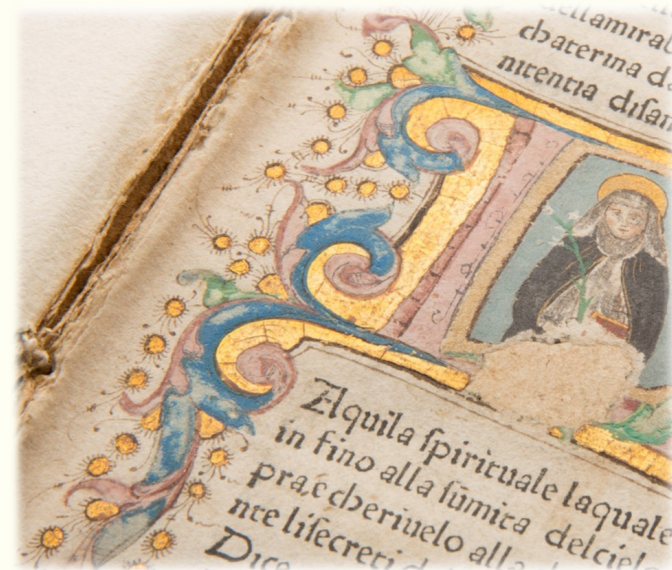 dellamiral
chaterina di
nitentia disan
Aquila spirituale laquale
in fino alla sūmita delciel
pra,e cheriuelo alla
nte lisecreti
Dice